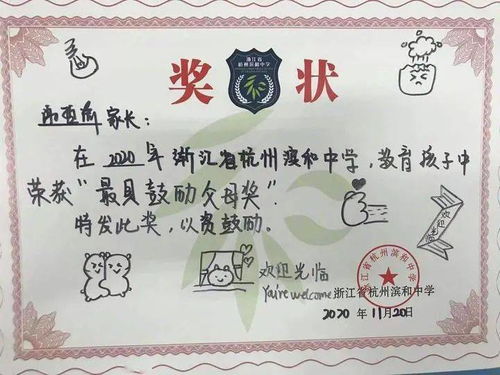 浙江省
杭州滨和中学
奖 状
家长：
在2020年浙江省杭州滨和中学，教育孩子中
荣获“最具鼓励父母奖”.
特发此奖，以资鼓励。
欢迎光临
欢迎光临
You're welcome
浙江省杭州滨和中学
浙江省杭州滨和中学
2020 年 11月 20日